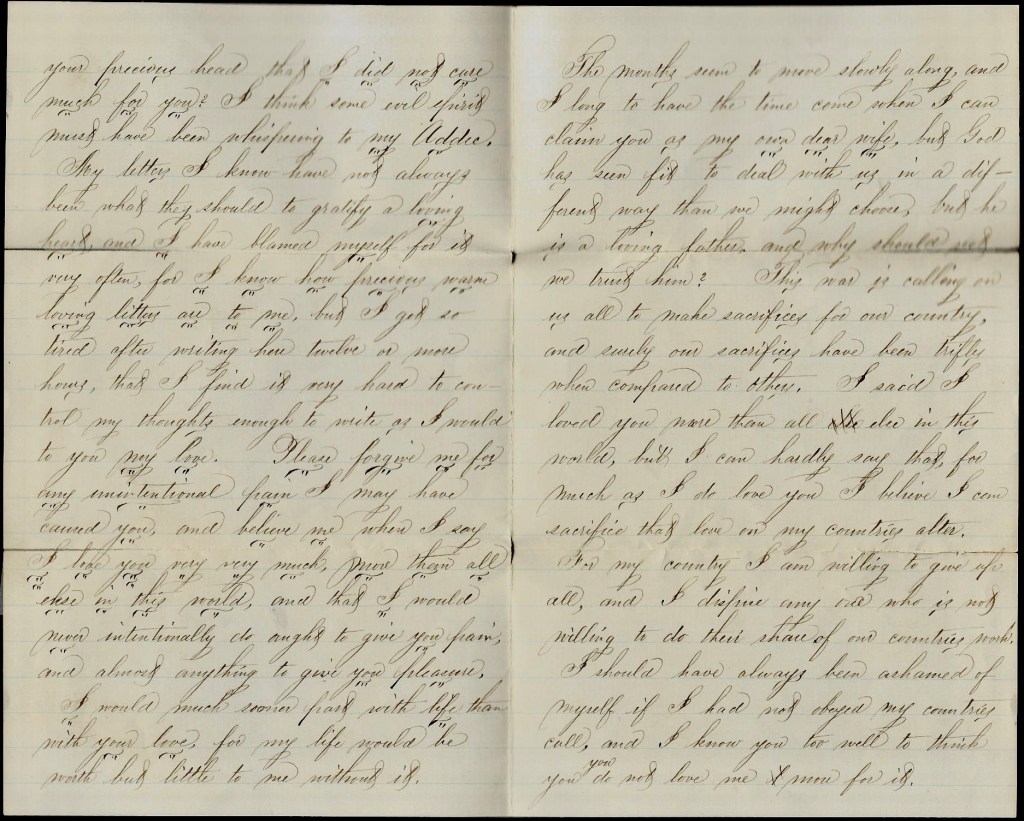 your precious head that I did not care
much for you? I think some evil spirit
must have been whispering to my Addee.
My letters I know have not always
been what they should to gratify a loving
heart, and I have blamed myself for it
very often, for I know how precious warm
loving letters are to me, but I get so
tired after writing here twelve or more
hours, that I find it very hard to con-
trol my thoughts enough to write as I would
to you my love. Please forgive me for
any unintentional pain I may have
caused you, and believe me when I say
I love you very very much, more than all
else in this world, and that I would
never intentionally do aught to give you pain,
and almost anything to give you pleasure.
I would much sooner part with life than
with your love, for my life would be
worth but little to me without it.
The months seem to move slowly along, and
I long to have the time come when I can
claim you as my own dear wife, but God
has seen fit to deal with us in a dif-
ferent way than we might choose, but he
is a living father, and why should not
we trust him? This war is calling on
us all to make sacrifices for our country,
and surely our sacrifices have been trifles
when compared to others. I said I
loved you more than all else in this
world, but I can hardly say that, for
much as I do love you I believe I can
sacrifice that love on my countries alter.
For my country I am willing to give up
all, and I dispise any one who is not
willing to do their share of our countries work.
I should have always been ashamed of
myself if I had not obeyed my countries
call, and I know you too well to think
you you do not love me more for it.